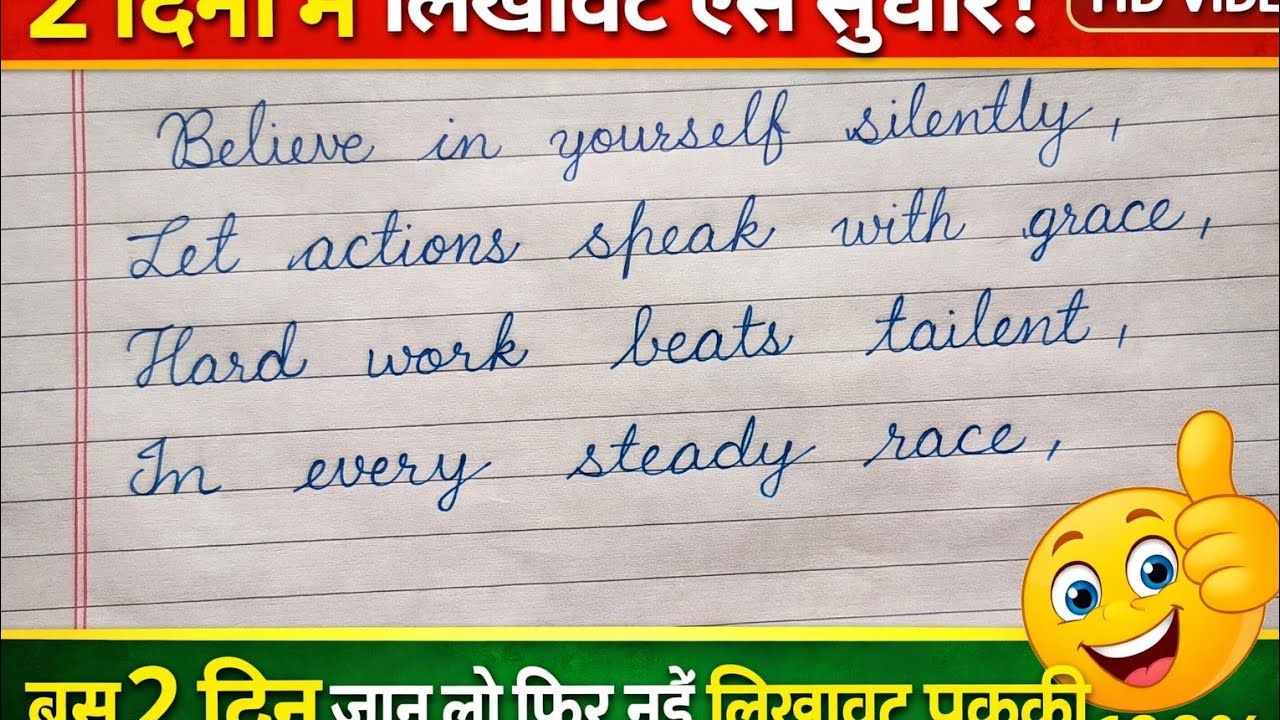 2 दिनों में लिखावट ऐसे सुधारें!
HD VIDE
Believe in yourself silently,
Let actions speak with grace,
Hard work beats tailent,
In every steady race,
बस 2 दिन जान लो फिर नई लिखावट पक्की